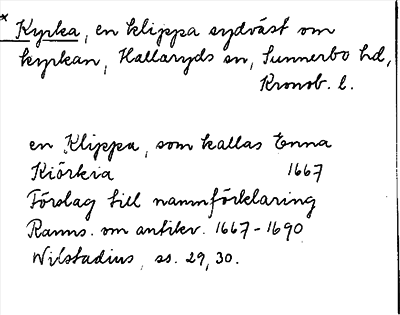 * Kyrka, en klippa sydväst om
kyrkan, Hallaryds sn, Sunnerbo hd,
Kronob. l.
en Klippa, som kallas Enna
Kiörkia 1667
Förslag till namnförklaring
Ranns. om antikv. 1667-1690
Wilstadius, ss. 29, 30.